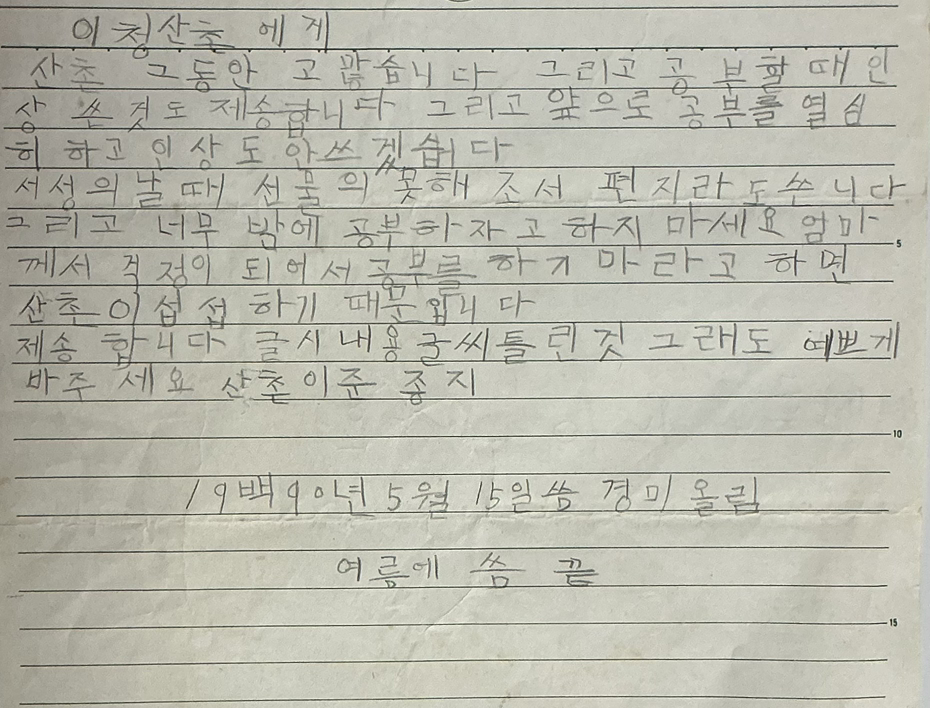 이청산촌 에게
산촌 그동안 고 많습니다 그리고 공 부할 때 인
상 쓴 것 도 제송합니다 그리고 앞으로 공부를 열심
히 하고 인상 도 안쓰 겠습니다
서성의 날 때 선물의 못해 조서 편지라도 쓰니다
그리고 너무 밤에 공부하자고 하지 마세요 엄마
께서 걱정이 되어서 공부를 하기 마라고 하면
산촌이 섭섭 하기 때문입니다
제송 합니다 글시내용 글씨틀린 것 그래도 예쁘게
바주 세요 산촌이준 종지
19백90년 5월 15일씀 경미 올림
여름에 씀 끝
5
10
15